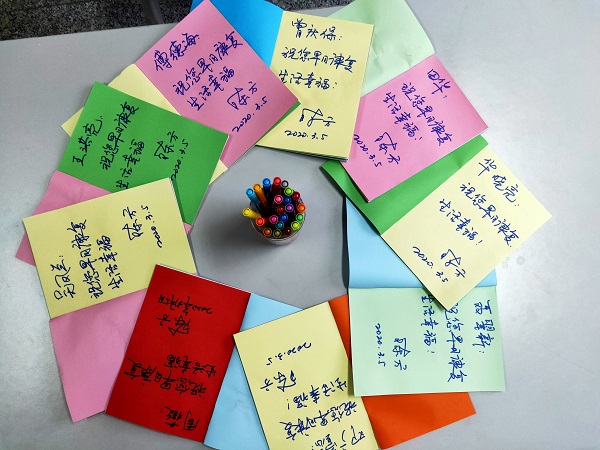 曾庆保:
祝您早日康复
生活幸福!
陈方
2020.3.5
田华:
祝您早日康复
生活幸福!
陈方
2020.3.5
华晓亮:
祝您早日康复
生活幸福!
陈方
2020.3.5
明新:
祝您早日康复
生活幸福!
陈方
2020.3.5
祝您早日康复
生活幸福!
陈方
2020.3.5
祝您早日康复
生活幸福
陈方
祝您早日康复
生活幸福!
陈方
2020.3.5
王洪亮:
祝您早日康复
生活幸福!
陈方
2020.3.5
傅德海:
祝您早日康复
生活幸福!
陈方
2020.3.5